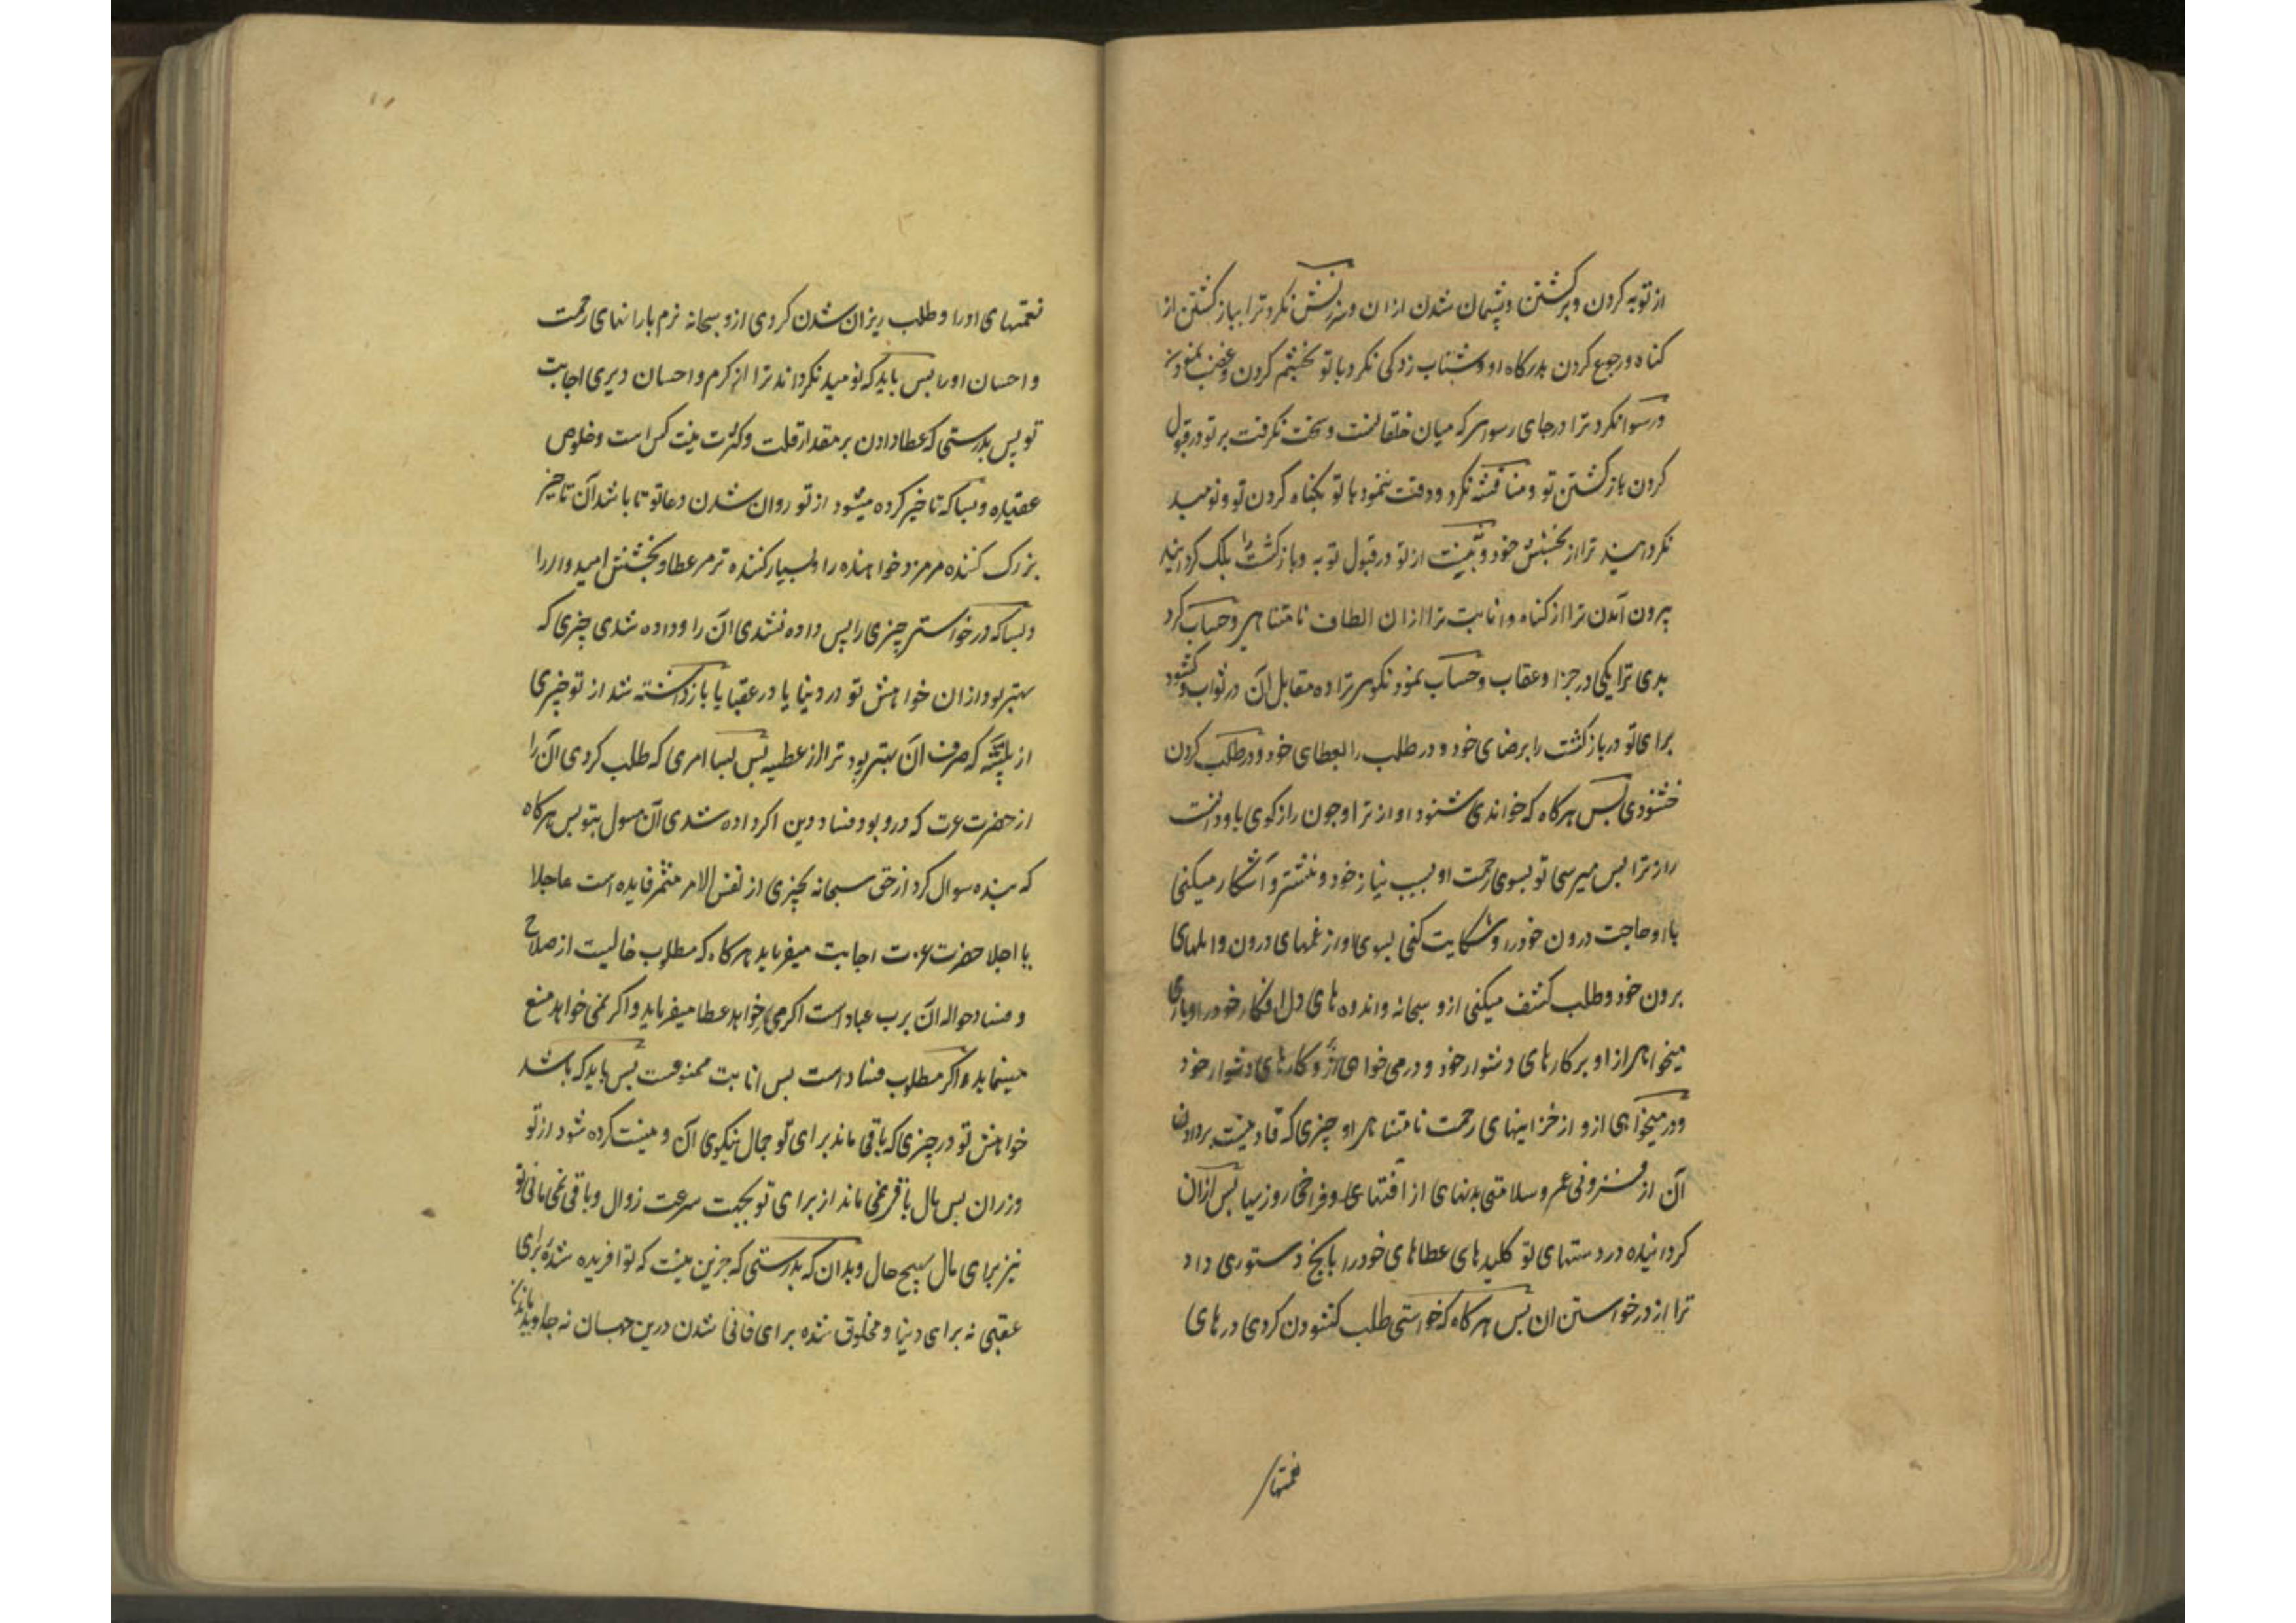 از توبه کردن و برگشتن و پشیمان شدن ازان و سرزنش نکرد ترا بباز گشتن از
کناه و رجوع کردن بدرکاه او و شتاب زدکی نکرد با تو بخشم کردن و غضب نمودن
و رسوا نکرد ترا در جای رسوایی که میان خلقانست و سخت نکرفت بر تو در قبول
کردن بازکشتن تو و مناقشه نکرد و دقت ننمود با تو بکناه کردن تو و نومید
نکردانید ترا از بخشش خود و نیست از تو در قبول توبه و بازکشت بلک کردانید
بیرون آمدن ترا از کناه و انابت ترا ازان الطاف نامتناهی و حساب کرد
بدی ترا یکی در جزا و عقاب و حساب نمود نکویی ترا ده مقابل آن در ثواب و کشود
برای تو در بازکشت را برضای خود و در طلب را بعطای خود و در طلب کردن
خشنودی پس هرکاه که خواندی شنود اواز ترا و چون راز کوی با و دانست
راز ترا پس میرسی تو بسوی رحمت او بسبب نیاز خود و منتشر و آشکار میکنی
با او حاجت درون خود را و شکایت کنی بسوی او از غمهای درون و المهای
برون خود و طلب کشف میکنی ازو سبحانه و اندوه های دل افکار خود را و یاری
میخواهی از او بر کارهای دشوار خود و در می خواهی ازو کارهای دشوار خود
و در میخواهی ازو از خزاینهای رحمت نامتناهی او چیزی که قادر نیست بر دادن
آن از فزونی عمر و سلامتی بدنهای از افتهای و فراخی روزیها پس ازان
کردانیده در دستهای تو کلیدهای عطاهای خود را بانچ دستوری داد
ترا از درخواستن ان پس هرکاه که خواستی طلب کشودن کردی درهای
نعمتهای
نعمتهای او را و طلب ریزان شدن کردی ازو سبحانه نرم بارانهای رحمت
و احسان او را پس باید که نومید نکرداند ترا از کرم و احسان دیری اجابت
تو پس بدرستی که عطا دادن بر مقدار قلت و کثرت نیت کس است و خلوص
عقیده و بسا که تاخیر کرده میشود از تو روان شدن دعا تو تا باشد آن تاخیر
بزرک کننده مر مزد خواهنده را و بسیار کننده تر مر عطا و بخشش امیدوار را
و بسا که درخواستی چیزی را پس داده نشدی ان را و داده شدی چیزی که
بهتر بود ازان خواهش تو در دنیا یا در عقبا یا بازداشته شد از تو چیزی
از که صرف آن بهتر بود ترا از عطیه پس بسا امری که طلب کردی آن را
از حضرت عزت که درو بود فساد دین اکر داده شدی آن مسول بتو پس هرکاه
که بنده سوال کرد از حق سبحانه بچیزی از نفس الامر مثمر فایده است عاجلا
یا اجلا حضرت عزت اجابت میفرماید هرکاه که مطلوب خالیست از صلاح
و فساد حواله آن برب عباد است اکر می خواهد عطا میفرماید و اکر نمی خواهد منع
مینماید و اکر مطلوب فساد است پس انابت ممنوعست پس باید که باشد
خواهش تو در چیزی که باقی ماند برای تو جمال نیکوی آن و نیست کرده شود از تو
وزران پس مال باقی نمی ماند از برای تو بجهت سرعت زوال و باقی نمی مانی تو
نیز برای مال بهیچ حال و بدان که بدرستی که جزین نیست که تو افریده شدۀ برای
عقبی نه برای دنیا و مخلوق شده برای فانی شدن درین جهان نه جاوید ماندن